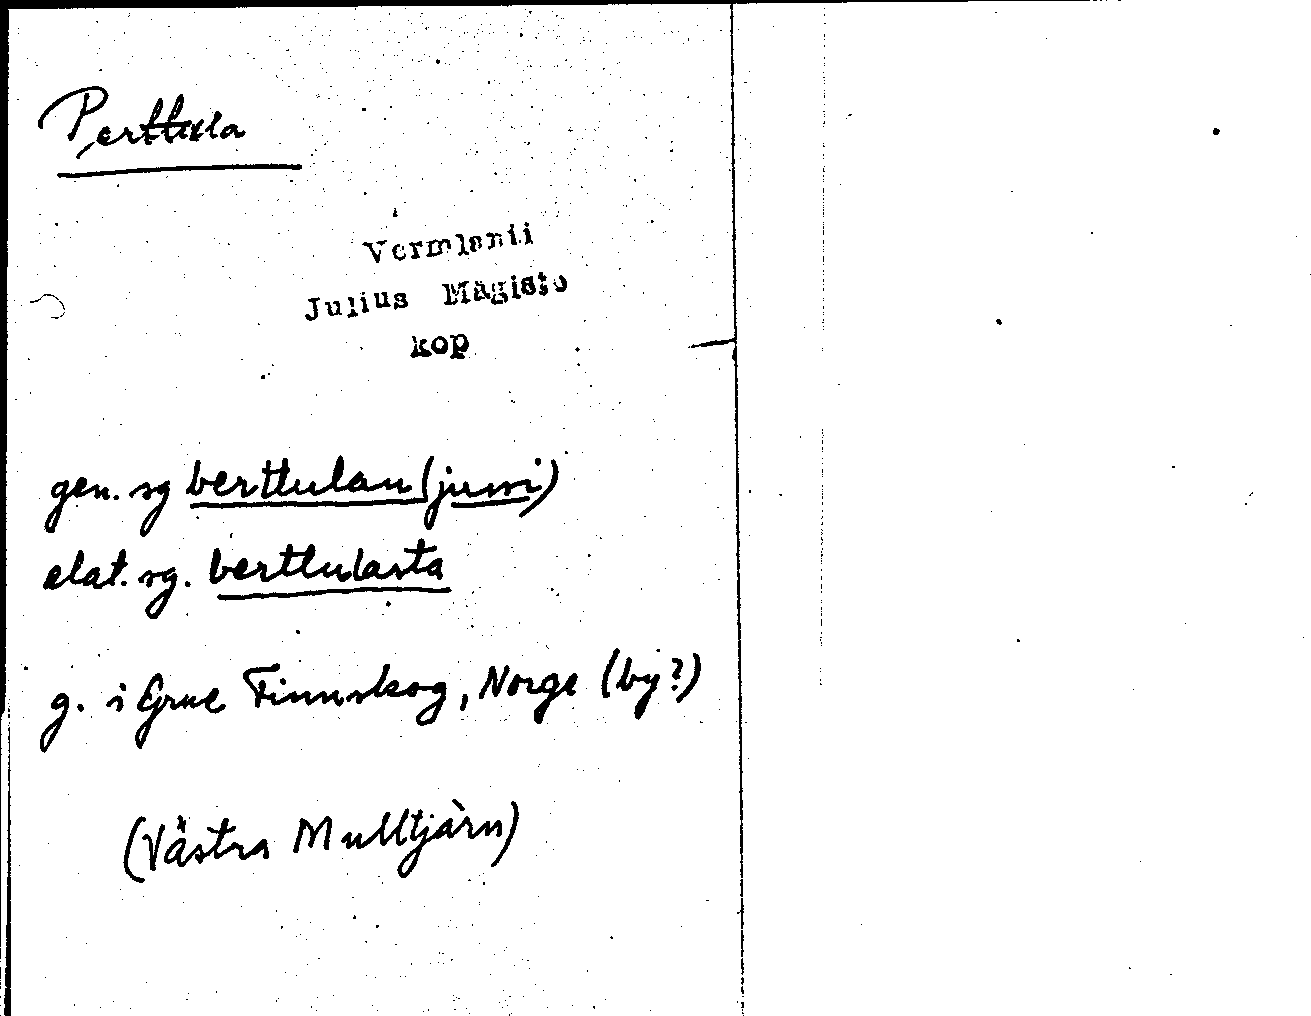 Perttula
Vermlanti
Julius Mägiste
kop
gen. sg berttulan (jussi)
elat. sg. berttulasta
g. i Grue Finnskog, Norge (by?)
(Västra Multtjärn)